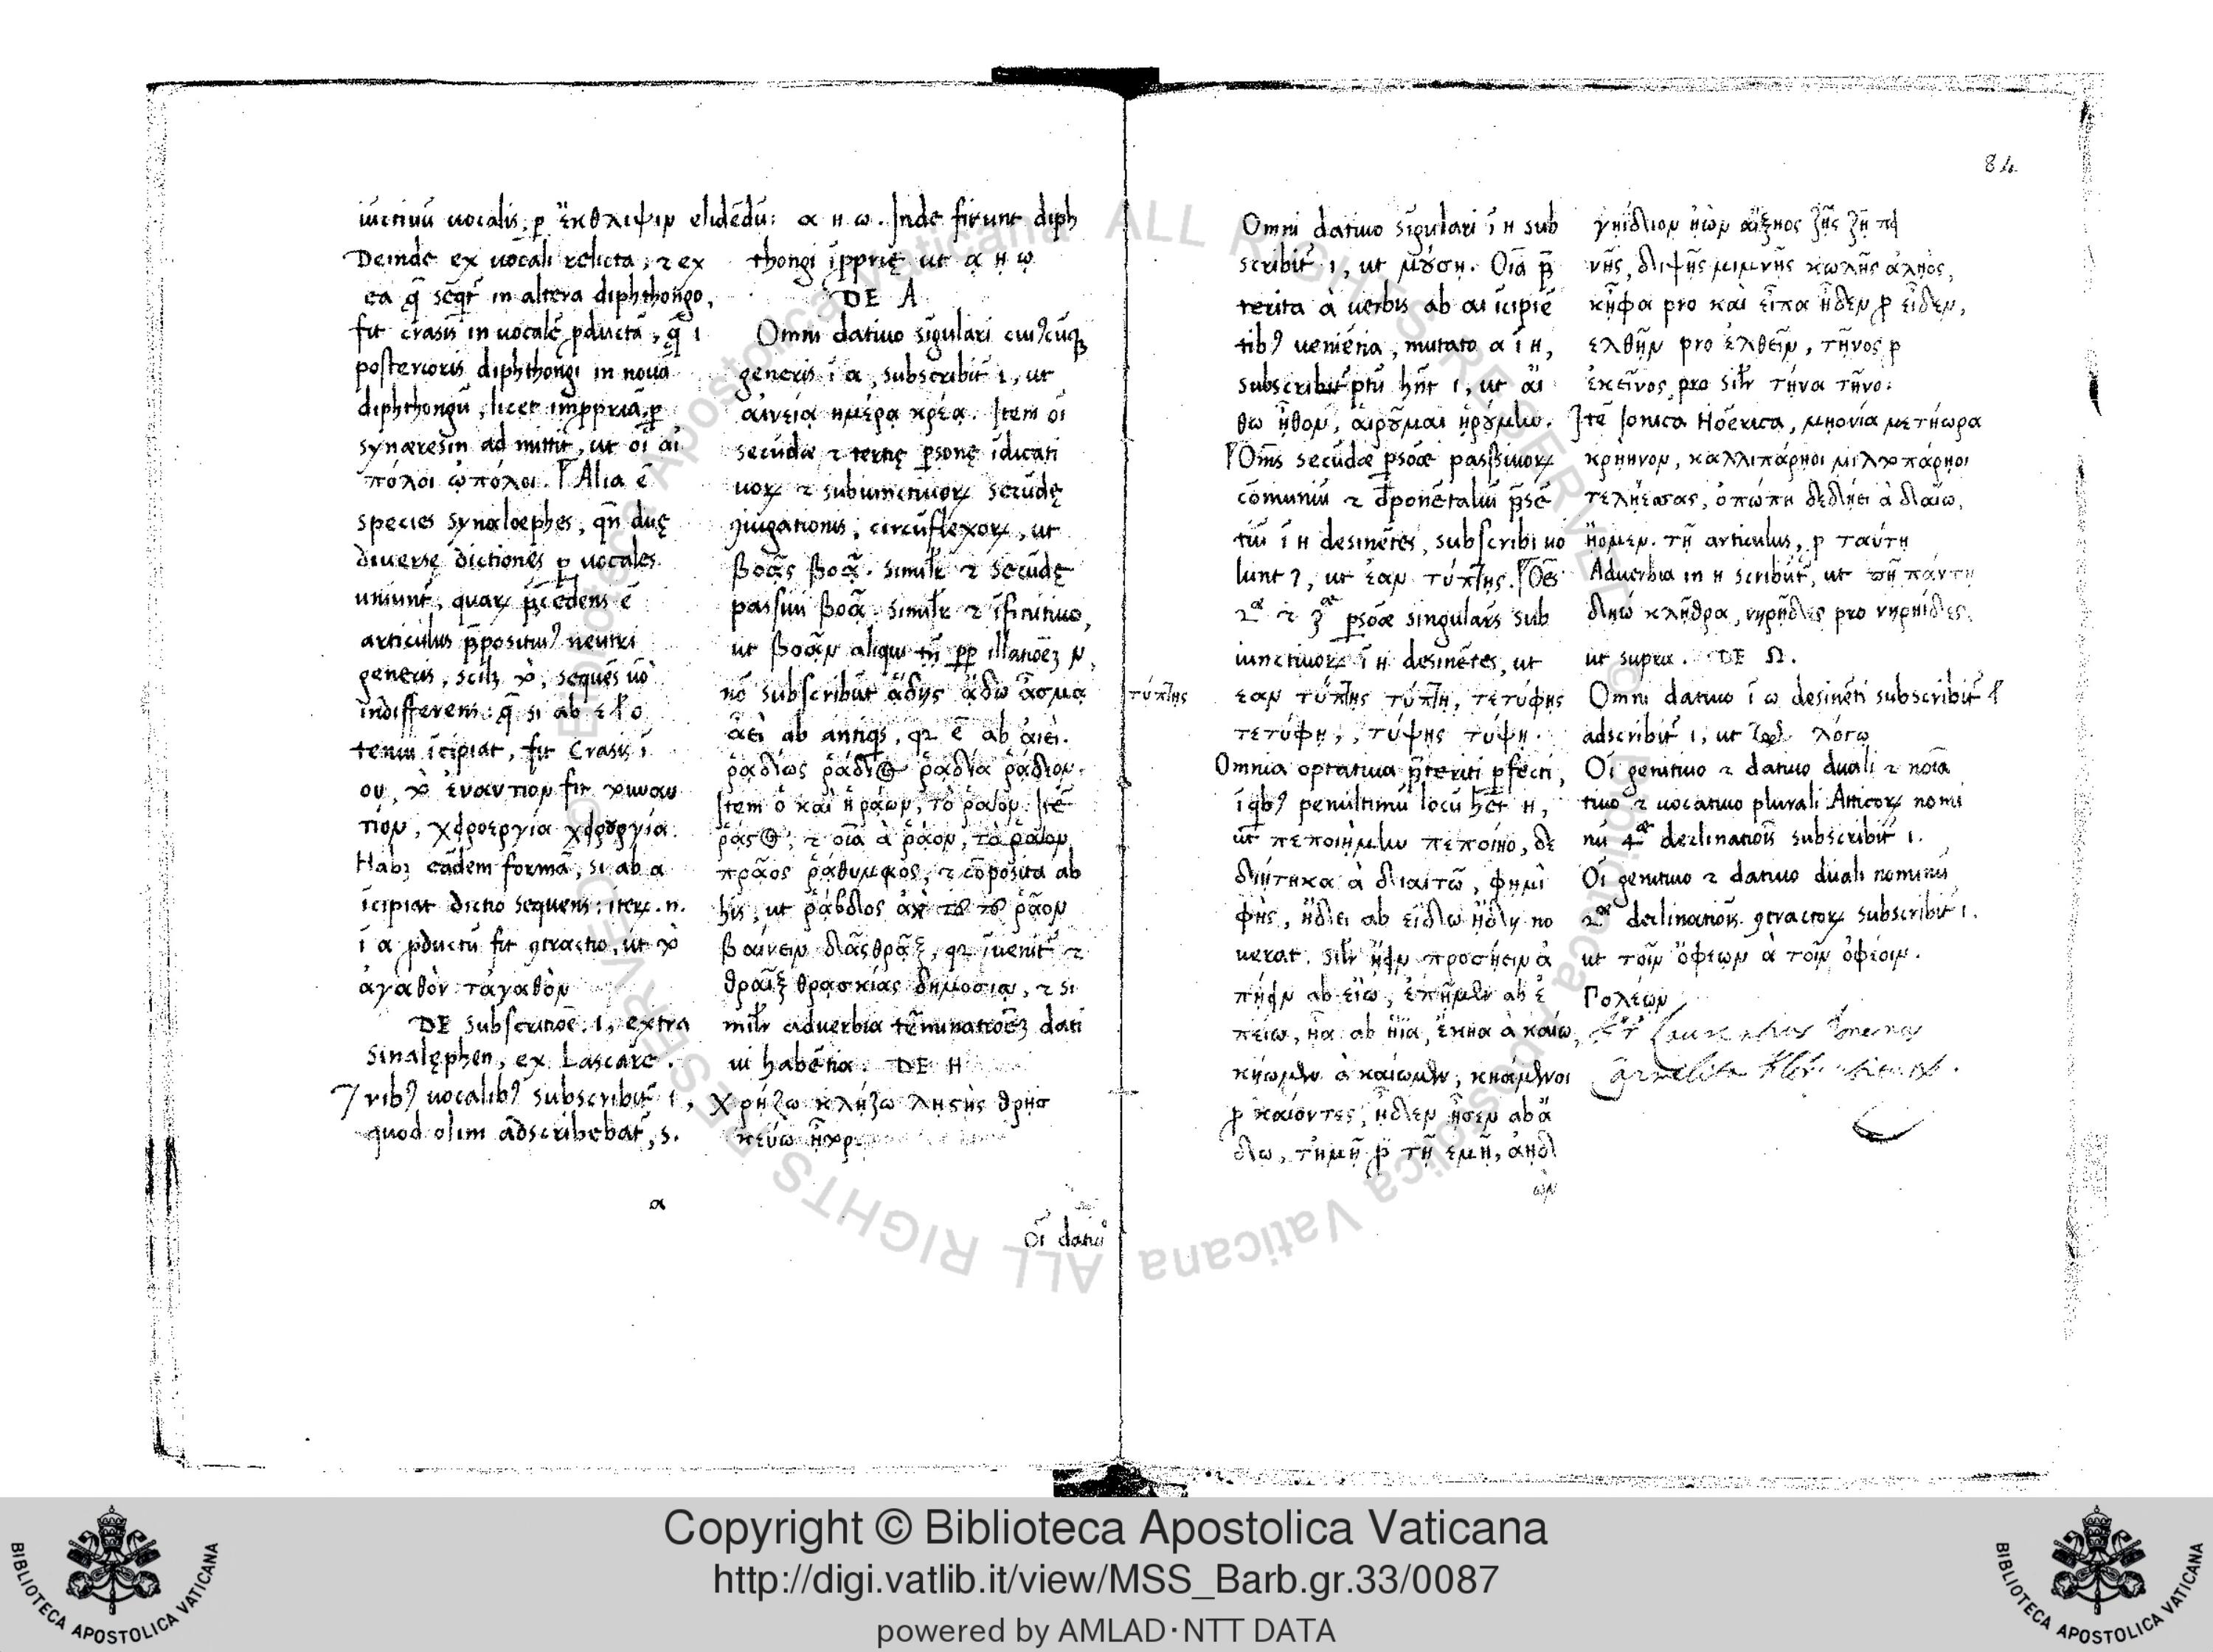 84
iūctiuū uocalis, ꝑ ἔκθλιψιν elidēdū:
Deinde ex uocali relicta, ⁊ ex
ea q̄ seq̄t̄ in altera diphthongo,
fit crasis in uocalē ꝓductā, q̄ ι
posterioris diphthongi in nouā
diphthongū, licet impropriā, ꝑ
synæresin admittit, ut οἱ αἰ
πόλοι ᾡπόλοι. Alia ē
species synaloephes, qn̄ duę
diuersę dictiones ꝑ uocales
uniunt̄, quaꝝ p̄cedens ē
articulus p̄positiuꝰ neutri
generis, scilꝫ τὸ, sequēs uō
indifferens: q̄ si ab ε l̄ ο
tenui īcipiat, fit Crasis ī
ου, τὸ ἐναντίον fit τοὐναν
τίον, χεροεργία χερουργία.
Habꝫ eādem formā, si ab α
īcipiat dictio sequens: iteꝝ. n.
ī α ꝓductū fit ꝯtractio, ut τὸ
ἀγαθὸν τἀγαθὸν
DE subscritiōe. ι, extra
sinalęphen, ex Lascare.
Tribꝰ uocalibꝰ subscribit̄ ι,
quod olim adscribebat̄, s.
α
α η ω. Inde fiunt diph
thongi īproprię ut ᾳ ῃ ῳ
DE A
Omni datiuo sīgulari cuiꝰcūqꝫ
generis ī α, subscribit̄ ι, ut
αἰνείᾳ ἡμέρᾳ κρέᾳ. Item oī
secūdæ ⁊ tertię ꝑsonę īdicati
uoꝝ ⁊ subiunctiuoꝝ secūdę
ꝯiugationis, circūflexoꝝ, ut
βοᾷς βοᾷ. Similr̄ ⁊ secūdę
passiui βοᾷ. similr̄ ⁊ īfinitiuo,
ut βοᾷν aliqui tn̄ ꝓꝑ illatiōeꝫ ν,
nō subscribūt ᾅδης ᾄδω ᾆσμα
ᾀεὶ ab antiqs, qꝛ ē ab αἰεὶ.
ῥᾳδίως ῥᾴδιος ῥᾳδία ῥᾴδιον.
Item ὁ καὶ ἡ ῥᾴων, τὸ ῥᾷον. Itē
ῥᾷστος; ⁊ oīa à ῥᾷον, τὸ ῥᾷον
πρᾷος ῥᾴθυμος, ⁊ cōposita ab
his, ut ῥάβδιος ἀπὸ τοῦ ῥᾷον
βαίνειν θρᾷξ, qꝛ īuenit̄ ⁊
θραῒξ θρᾳκίας δημοσίᾳ, ⁊ si
milr̄ aduerbia tēminatiōeꝫ dati
ui habētia. DE H
χρῄζω κλῄζω λῃστὴς θρῃσ
κεύω
Oī datiuo
τύπτῃς
Omni datiuo sīgulari ī η sub
scribit̄ ι, ut μούσῃ. Oīa p̄
terita à uerbis ab αι īcipiē
tibꝰ ueniētia, mutato α ī η,
subscribit̄ ptū hn̄t ι, ut αἴ
θω ᾖθον, αἱροῦμαι ᾑρούμην.
Om̄s secūdæ ꝑsōæ passiuoꝝ
cōmuniū ⁊ dēponētaliū p̄sē
tiū ī η desinētes, subscribi uo
lunt ι, ut ἐαν τύπτῃς. Oēs
2ᵃᵉ ⁊ 3ᵃᵉ ꝑsōæ singularēs sub
iunctiuoꝝ ī η desinētes, ut
ἐαν τύπτῃς τύπτῃ, τετύφῃς
τετύφῃ, τύψῃς τύψῃ.
Omnia optatiua p̄teriti ꝑfecti,
ī qbꝰ penultimū locū hēt η,
ut πεποιῄμην πεποίῃο, δε
διῄτηκα à διαιτῶ, φημὶ
φῂς, ᾔδει ab εἴδω ᾔδῃ no
uerat. silr̄ ᾖειν προσῄειν ἀ
πῄειν ab εἴω, ἐπῄμεν ab ἐ
πείω, ᾖα ab ἤϊα, ἔκῃα à καίω,
κῄωμεν à καίωμεν, κῃάμενοι
ꝓ καίοντες, ᾖδεν ᾖσεν ab ᾄ
δω, τἠμῇ ꝓ τῇ ἐμῇ, ἀῃδ
ων
γῄδιον ᾐὼν ζῇς ζῇ πει
νῇς, διψῇς μιμνῇς κωλῇς
κᾖφα pro καὶ εἶπα ᾖδεν ꝓ εἶδεν,
ελθῇν pro ἐλθεῖν, τῆνος ꝓ
ἐκεῖνος, pro silr̄ τήνα τῆνο:
Itē Ionica Hoērica, μῃονία μετήωρα
κρήηνον, καλλιπάρῃοι μιλτοπάρῃοι
τεληέσσας, ὀπώπη δεδῄει à δαίω,
ᾔομεν. τῇ articulus, ꝓ ταύτῃ
Aduerbia in η scribūt̄, ut πῇ πάντῃ
δῃώ κλῇθρα, νηρῇδες pro νηρηΐδες.
ut supra. DE Ω.
Omni datiuo ī ω desinēti subscribit̄ l̄
adscribit̄ ι, ut λόγῳ
Oī genitiuo ⁊ datiuo duali ⁊ noīa
tiuo ⁊ uocatiuo plurali Atticoꝝ nomi
nū 4ᵃᵉ declinatiōis subscribit̄ ι.
Oī genitiuo ⁊ datiuo duali nominū
2ᵃᵉ declinatiōis ꝯtractoꝝ subscribit̄ ι.
ut τοῖν ὄφεῳν à τοῖν ὀφέοιν.
Πολέῳν
Copyright © Biblioteca Apostolica Vaticana
http://digi.vatlib.it/view/MSS_Barb.gr.33/0087
powered by AMLAD·NTT DATA
BIBLIOTECA APOSTOLICA VATICANA
BIBLIOTECA APOSTOLICA VATICANA